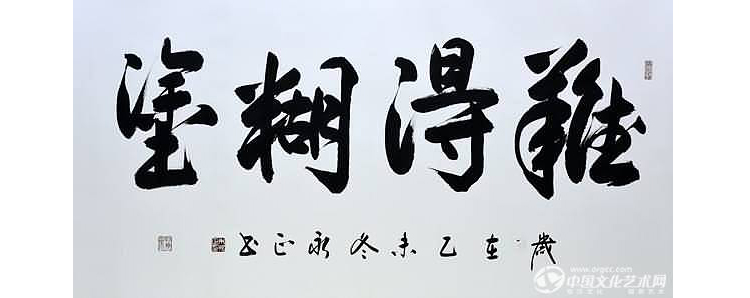 難得糊塗
歲在乙未冬永正书
www.orgcc.com
中国文化艺术网